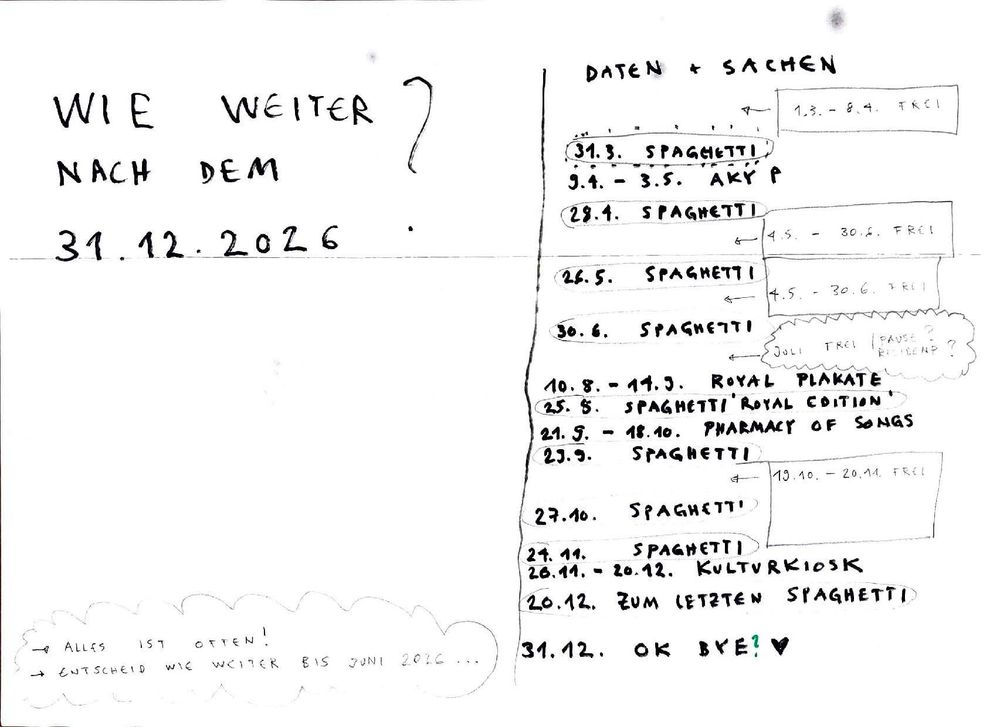 WIE WEITER
NACH DEM
31.12.2026 ?
→ ALLES IST OFFEN!
→ ENTSCHEID WIE WEITER BIS JUNI 2026 ...
DATEN + SACHEN
← 1.3. - 8.4. FREI
31.3. SPAGHETTI
9.4. - 3.5. AKY P
28.4. SPAGHETTI
← 4.5. - 30.6. FREI
26.5. SPAGHETTI
← 4.5. - 30.6. FREI
30.6. SPAGHETTI
← JULI FREI / PAUSE?
RESIDENP?
10.8. - 14.9. ROYAL PLAKATE
25.8. SPAGHETTI 'ROYAL EDITION'
21.9. - 18.10. PHARMACY OF SONGS
29.9. SPAGHETTI
← 19.10. - 20.11. FREI
27.10. SPAGHETTI
24.11. SPAGHETTI
26.11. - 20.12. KULTURKIOSK
20.12. ZUM LETZTEN SPAGHETTI
31.12. OK BYE? ♥